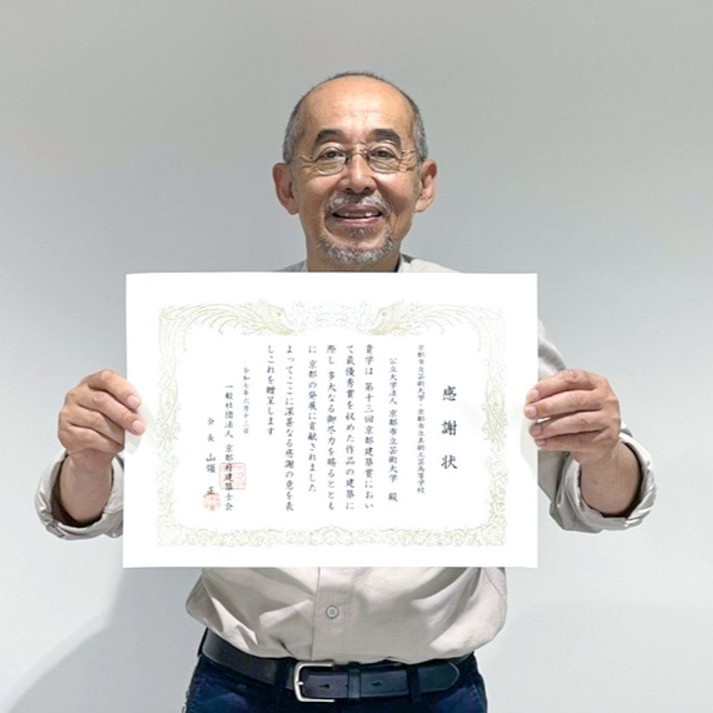 感謝状
京都市立芸術大学・京都市立美術工芸高等学校
公立大学法人 京都市立芸術大学 殿
貴学は 第十三回京都建築賞におい
て最優秀賞を収めた作品の建築に
際し 多大なる御尽力を賜るととも
に 京都の発展に貢献されました
よってここに深甚なる感謝の意を表
しこれを贈呈します
令和七年六月十三日
一般社団法人 京都府建築士会
会長 山領 正